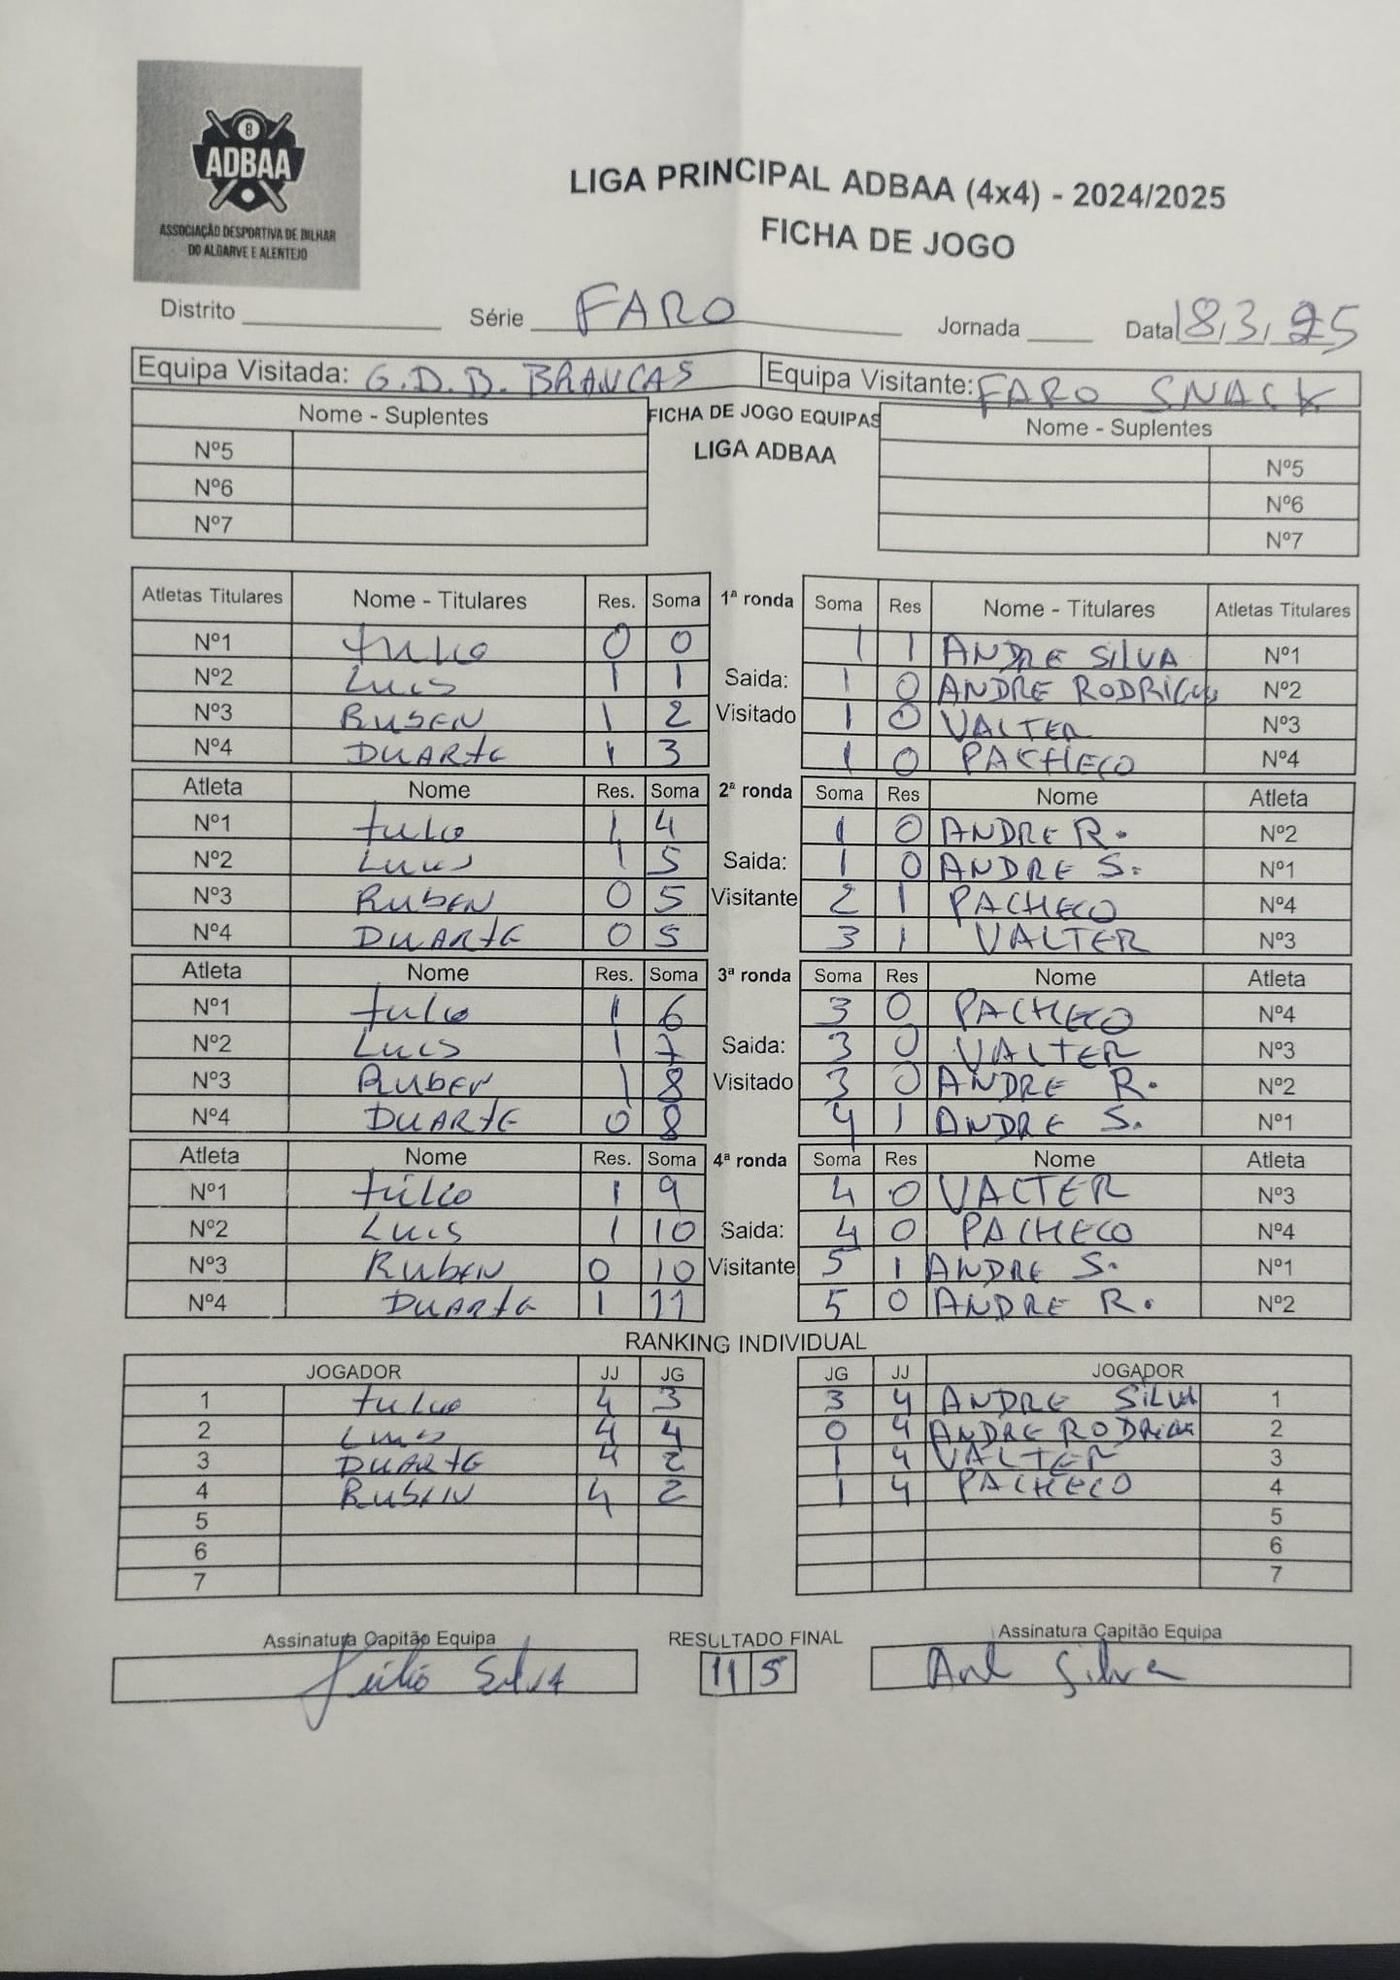 8
ADBAA
ASSOCIAÇÃO DESPORTIVA DE BILHAR
DO ALGARVE E ALENTEJO
LIGA PRINCIPAL ADBAA (4x4) - 2024/2025
FICHA DE JOGO
Distrito Série FARO Jornada Data 18,3,25
Equipa Visitada: G.D.B. BRANCAS Equipa Visitante: FARO SNACK
Nome - Suplentes FICHA DE JOGO EQUIPAS Nome - Suplentes
LIGA ADBAA
Nº5 Nº5
Nº6 Nº6
Nº7 Nº7
Atletas Titulares Nome - Titulares Res. Soma 1ª ronda Soma Res Nome - Titulares Atletas Titulares
Nº1 Julio 0 0 1 1 ANDRE SILVA Nº1
Nº2 Luis 1 1 Saida: 1 0 ANDRE RODRIGUES Nº2
Nº3 RUBEN 1 2 Visitado 1 0 VALTER Nº3
Nº4 DUARTE 1 3 1 0 PACHECO Nº4
Atleta Nome Res. Soma 2ª ronda Soma Res Nome Atleta
Nº1 Julio 1 4 1 0 ANDRE R. Nº2
Nº2 Luis 1 5 Saida: 1 0 ANDRE S. Nº1
Nº3 RUBEN 0 5 Visitante 2 1 PACHECO Nº4
Nº4 DUARTE 0 5 3 1 VALTER Nº3
Atleta Nome Res. Soma 3ª ronda Soma Res Nome Atleta
Nº1 Julio 1 6 3 0 PACHECO Nº4
Nº2 Luis 1 7 Saida: 3 0 VALTER Nº3
Nº3 RUBEN 1 8 Visitado 3 0 ANDRE R. Nº2
Nº4 DUARTE 0 8 4 1 ANDRE S. Nº1
Atleta Nome Res. Soma 4ª ronda Soma Res Nome Atleta
Nº1 Júlio 1 9 4 0 VALTER Nº3
Nº2 Luis 1 10 Saida: 4 0 PACHECO Nº4
Nº3 RUBEN 0 10 Visitante 5 1 ANDRE S. Nº1
Nº4 DUARTE 1 11 5 0 ANDRE R. Nº2
RANKING INDIVIDUAL
JOGADOR JJ JG JG JJ JOGADOR
1 Julio 4 3 3 4 ANDRE SILVA 1
2 Luis 4 4 0 4 ANDRE RODRIGUES 2
3 DUARTE 4 2 1 4 VALTER 3
4 RUBEN 4 2 1 4 PACHECO 4
5 5
6 6
7 7
Assinatura Capitão Equipa RESULTADO FINAL Assinatura Capitão Equipa
Júlio Silva 11 5 Silva